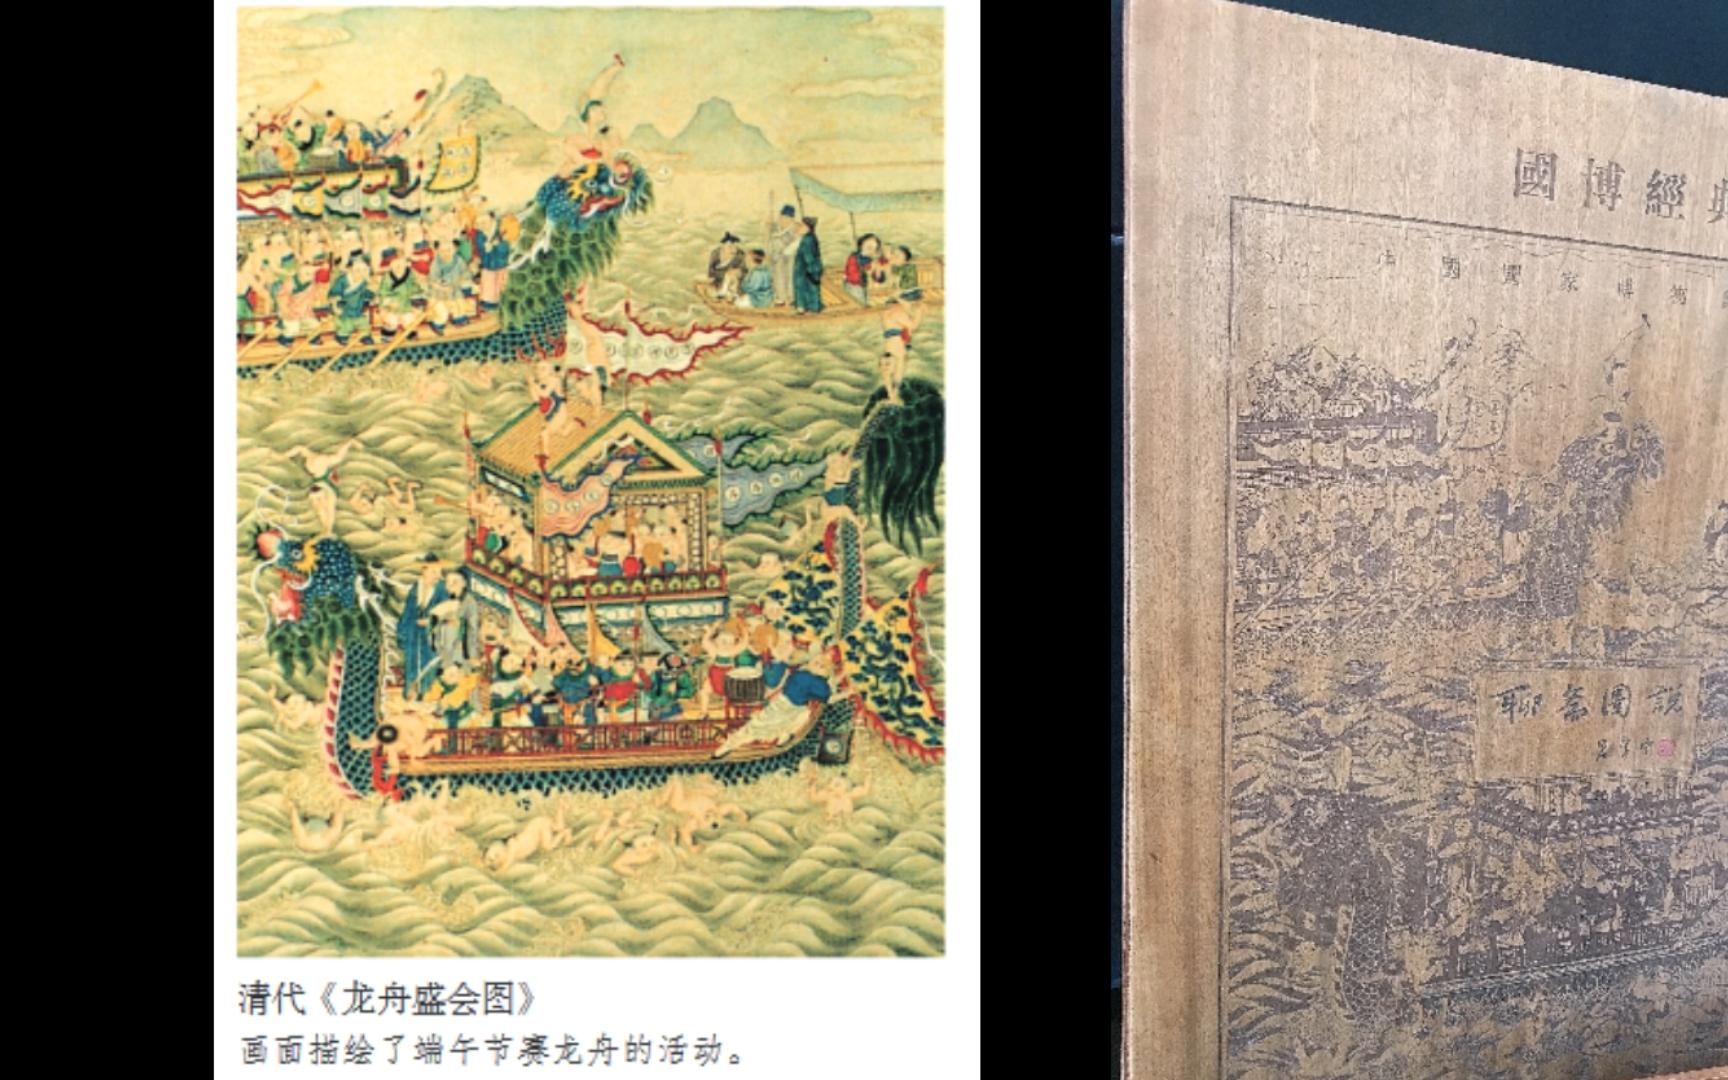 清代《龙舟盛会图》
画面描绘了端午节赛龙舟的活动。
國博經典
中國國家博物
聊齋圖說